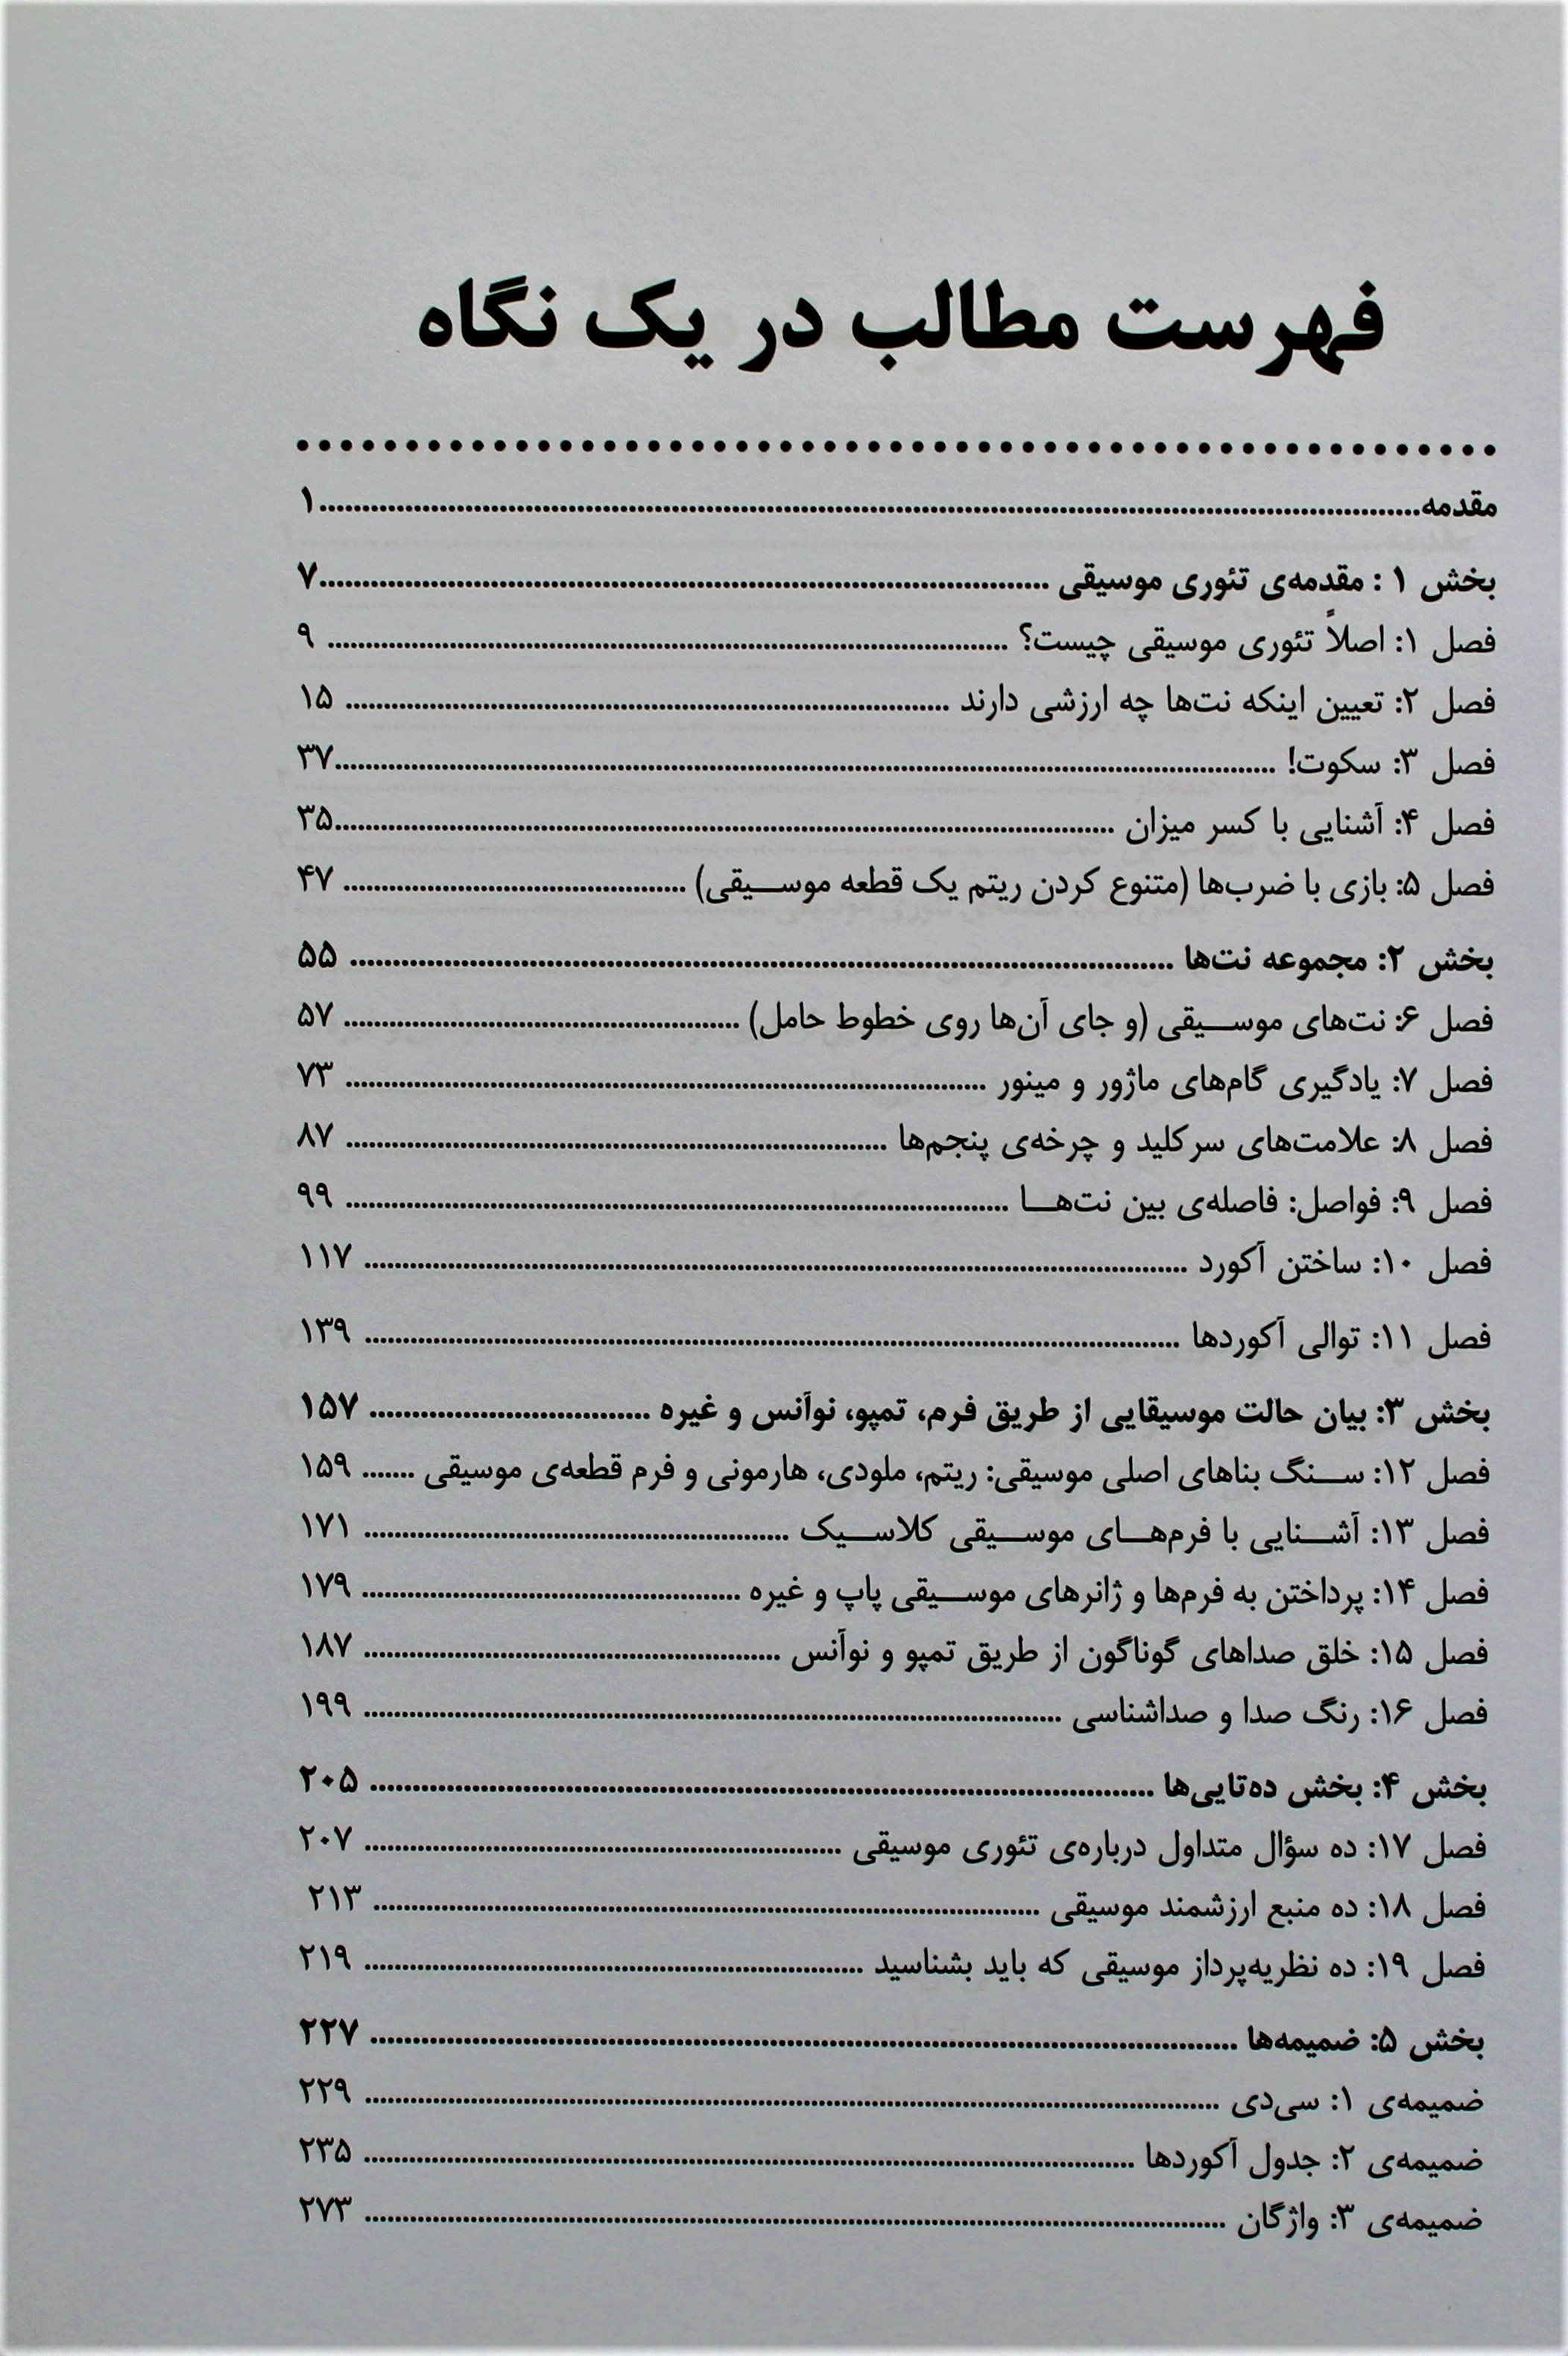 فهرست مطالب در یک نگاه
مقدمه....................۱
بخش ۱ : مقدمه‌ی تئوری موسیقی ....................۷
فصل ۱: اصلاً تئوری موسیقی چیست؟ .................... ۹
فصل ۲: تعیین اینکه نت‌ها چه ارزشی دارند .................... ۱۵
فصل ۳: سکوت! ....................۳۷
فصل ۴: آشنایی با کسر میزان ....................۳۵
فصل ۵: بازی با ضرب‌ها (متنوع کردن ریتم یک قطعه موسیقی) .................... ۴۷
بخش ۲: مجموعه نت‌ها .................... ۵۵
فصل ۶: نت‌های موسیقی (و جای آن‌ها روی خطوط حامل) .................... ۵۷
فصل ۷: یادگیری گام‌های ماژور و مینور .................... ۷۳
فصل ۸: علامت‌های سرکلید و چرخه‌ی پنجم‌ها .................... ۸۷
فصل ۹: فواصل: فاصله‌ی بین نت‌ها .................... ۹۹
فصل ۱۰: ساختن آکورد .................... ۱۱۷
فصل ۱۱: توالی آکوردها .................... ۱۳۹
بخش ۳: بیان حالت موسیقایی از طریق فرم، تمپو، نوآنس و غیره .................... ۱۵۷
فصل ۱۲: سنگ بناهای اصلی موسیقی: ریتم، ملودی، هارمونی و فرم قطعه‌ی موسیقی ....... ۱۵۹
فصل ۱۳: آشنایی با فرم‌های موسیقی کلاسیک .................... ۱۷۱
فصل ۱۴: پرداختن به فرم‌ها و ژانرهای موسیقی پاپ و غیره .................... ۱۷۹
فصل ۱۵: خلق صداهای گوناگون از طریق تمپو و نوآنس .................... ۱۸۷
فصل ۱۶: رنگ صدا و صداشناسی .................... ۱۹۹
بخش ۴: بخش ده‌تایی‌ها .................... ۲۰۵
فصل ۱۷: ده سؤال متداول درباره‌ی تئوری موسیقی .................... ۲۰۷
فصل ۱۸: ده منبع ارزشمند موسیقی .................... ۲۱۳
فصل ۱۹: ده نظریه‌پرداز موسیقی که باید بشناسید .................... ۲۱۹
بخش ۵: ضمیمه‌ها .................... ۲۲۷
ضمیمه‌ی ۱: سی‌دی .................... ۲۲۹
ضمیمه‌ی ۲: جدول آکوردها .................... ۲۳۵
ضمیمه‌ی ۳: واژگان .................... ۲۷۳